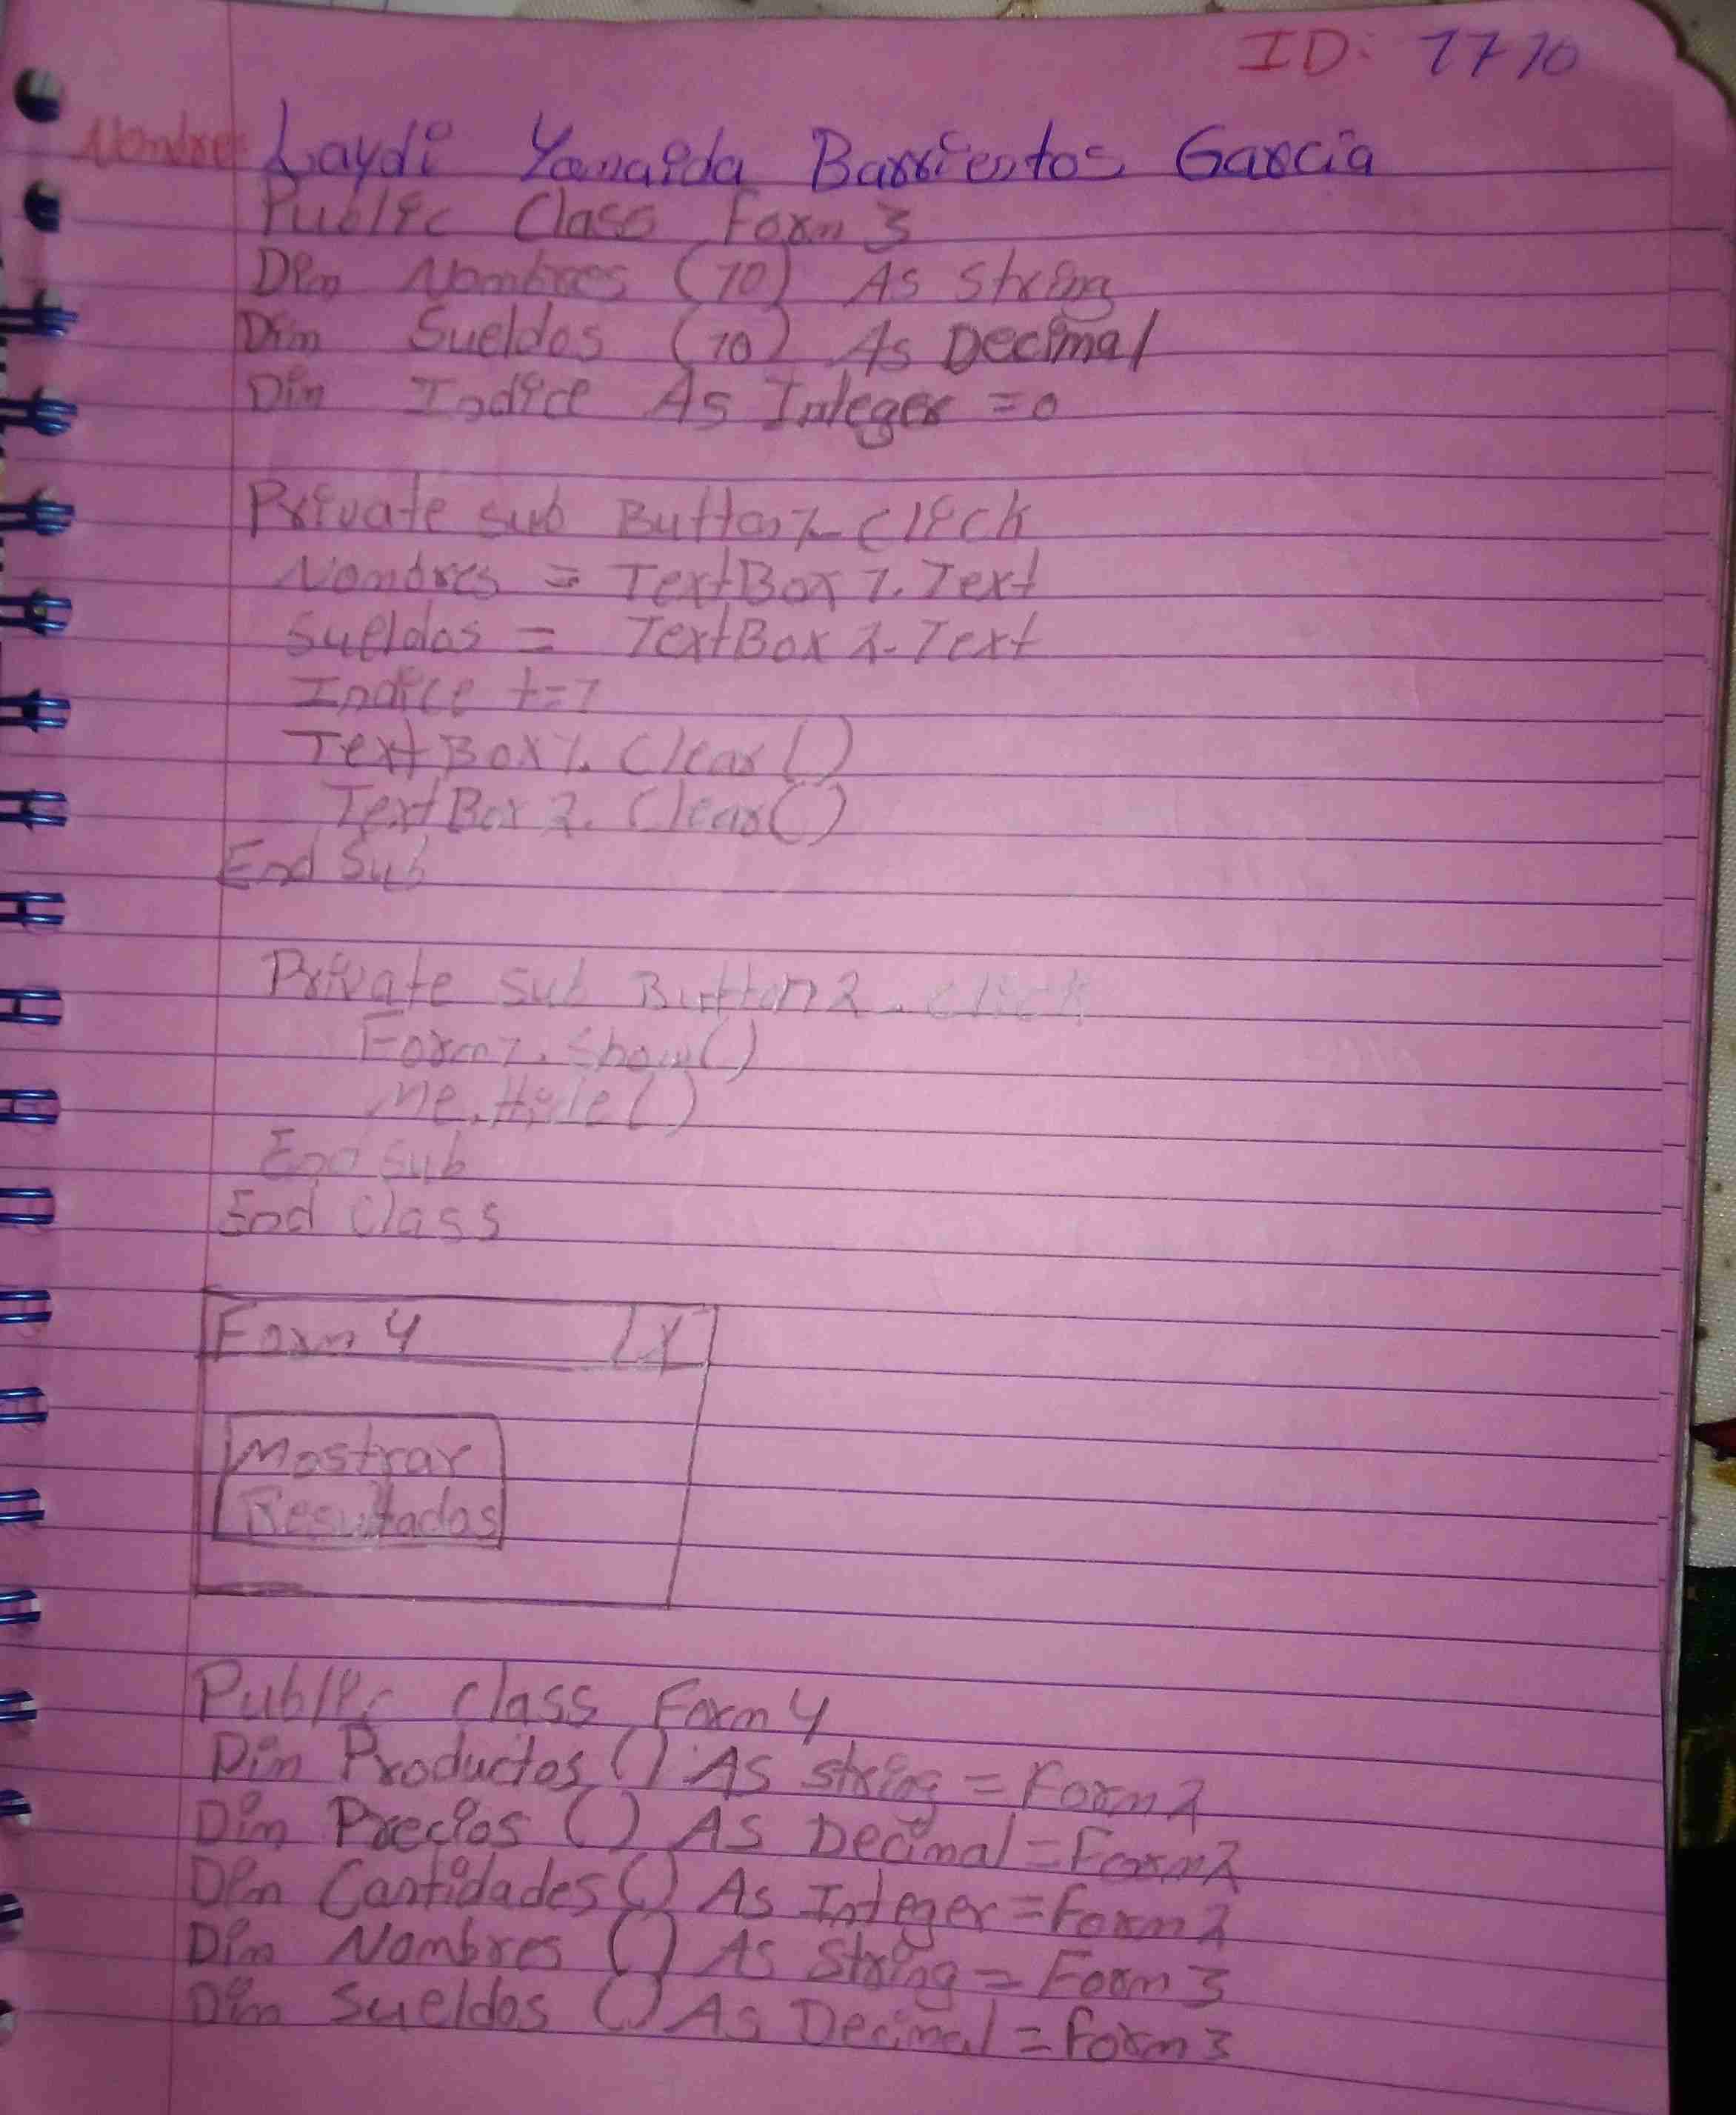 ID: 1710
Nombre: Laydi Yanaida Barrientos Garcia
Public Class Form 3
Dim Nombres (10) As String
Dim Sueldos (10) As Decimal
Dim Indice As Integer = 0
Private sub Button1_Click
Nombres = TextBox 1. Text
Sueldos = TextBox 2. Text
Indice += 1
TextBox 1. Clear ()
TextBox 2. Clear()
End Sub
Private Sub Button 2_Click
Form 1. Show()
Me. Hide ()
End Sub
End Class
Form 4 X
Mostrar
Resultados
Public class Form 4
Dim Productos () As string = Form 2
Dim Precios () As Decimal = Form 2
Dim Cantidades () As Integer = Form 2
Dim Nombres () As String = Form 3
Dim Sueldos () As Decimal = Form 3